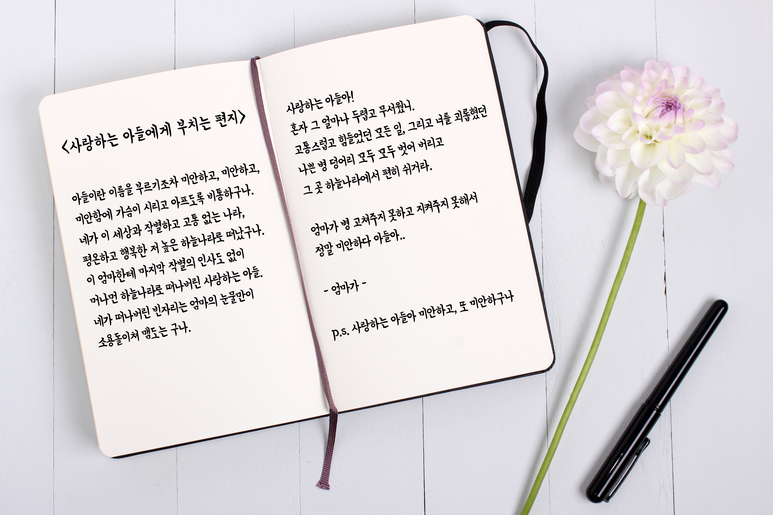 <사랑하는 아들에게 부치는 편지>
아들이란 이름을 부르기조차 미안하고, 미안하고,
미안함에 가슴이 시리고 아프도록 비통하구나.
네가 이 세상과 작별하고 고통 없는 나라,
평온하고 행복한 저 높은 하늘나라로 떠났구나.
이 엄마한테 마지막 작별의 인사도 없이
머나먼 하늘나라로 떠나버린 사랑하는 아들.
네가 떠나버린 빈자리는 엄마의 눈물만이
소용돌이쳐 맴도는 구나.
사랑하는 아들아!
혼자 그 얼마나 두렵고 무서웠니.
고통스럽고 힘들었던 모든 일, 그리고 너를 괴롭혔던
나쁜 병 덩어리 모두 모두 벗어 버리고
그 곳 하늘나라에서 편히 쉬거라.
엄마가 병 고쳐주지 못하고 지켜주지 못해서
정말 미안하다 아들아..
- 엄마가 -
p.s. 사랑하는 아들아 미안하고, 또 미안하구나